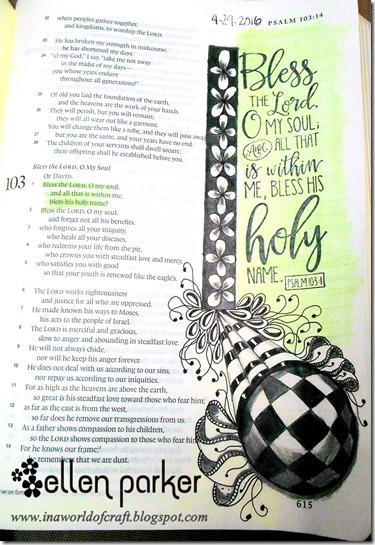 4-29-2016 PSALM 103:14
22 when peoples gather together,
and kingdoms, to worship the LORD.
23 He has broken my strength in midcourse;
he has shortened my days.
24 "O my God," I say, "take me not away
in the midst of my days—
you whose years endure
throughout all generations!"
25 Of old you laid the foundation of the earth,
and the heavens are the work of your hands.
26 They will perish, but you will remain;
they will all wear out like a garment.
You will change them like a robe, and they will pass away,
27 but you are the same, and your years have no end.
28 The children of your servants shall dwell secure;
their offspring shall be established before you.
Bless the LORD, O My Soul
103 OF DAVID.
1 Bless the LORD, O my soul,
and all that is within me,
bless his holy name!
2 Bless the LORD, O my soul,
and forget not all his benefits,
3 who forgives all your iniquity,
who heals all your diseases,
4 who redeems your life from the pit,
who crowns you with steadfast love and mercy,
5 who satisfies you with good
so that your youth is renewed like the eagle's.
6 The LORD works righteousness
and justice for all who are oppressed.
7 He made known his ways to Moses,
his acts to the people of Israel.
8 The LORD is merciful and gracious,
slow to anger and abounding in steadfast love.
9 He will not always chide,
nor will he keep his anger forever.
10 He does not deal with us according to our sins,
nor repay us according to our iniquities.
11 For as high as the heavens are above the earth,
so great is his steadfast love toward those who fear him;
12 as far as the east is from the west,
so far does he remove our transgressions from us.
13 As a father shows compassion to his children,
so the LORD shows compassion to those who fear him.
14 For he knows our frame;
he remembers that we are dust.
Bless
THE Lord,
O MY SOUL;
AND ALL THAT
is within
ME, BLESS HIS
holy
NAME.
PSALM 103:1
we are form
615
ellen parker
www.inaworldofcraft.blogspot.com